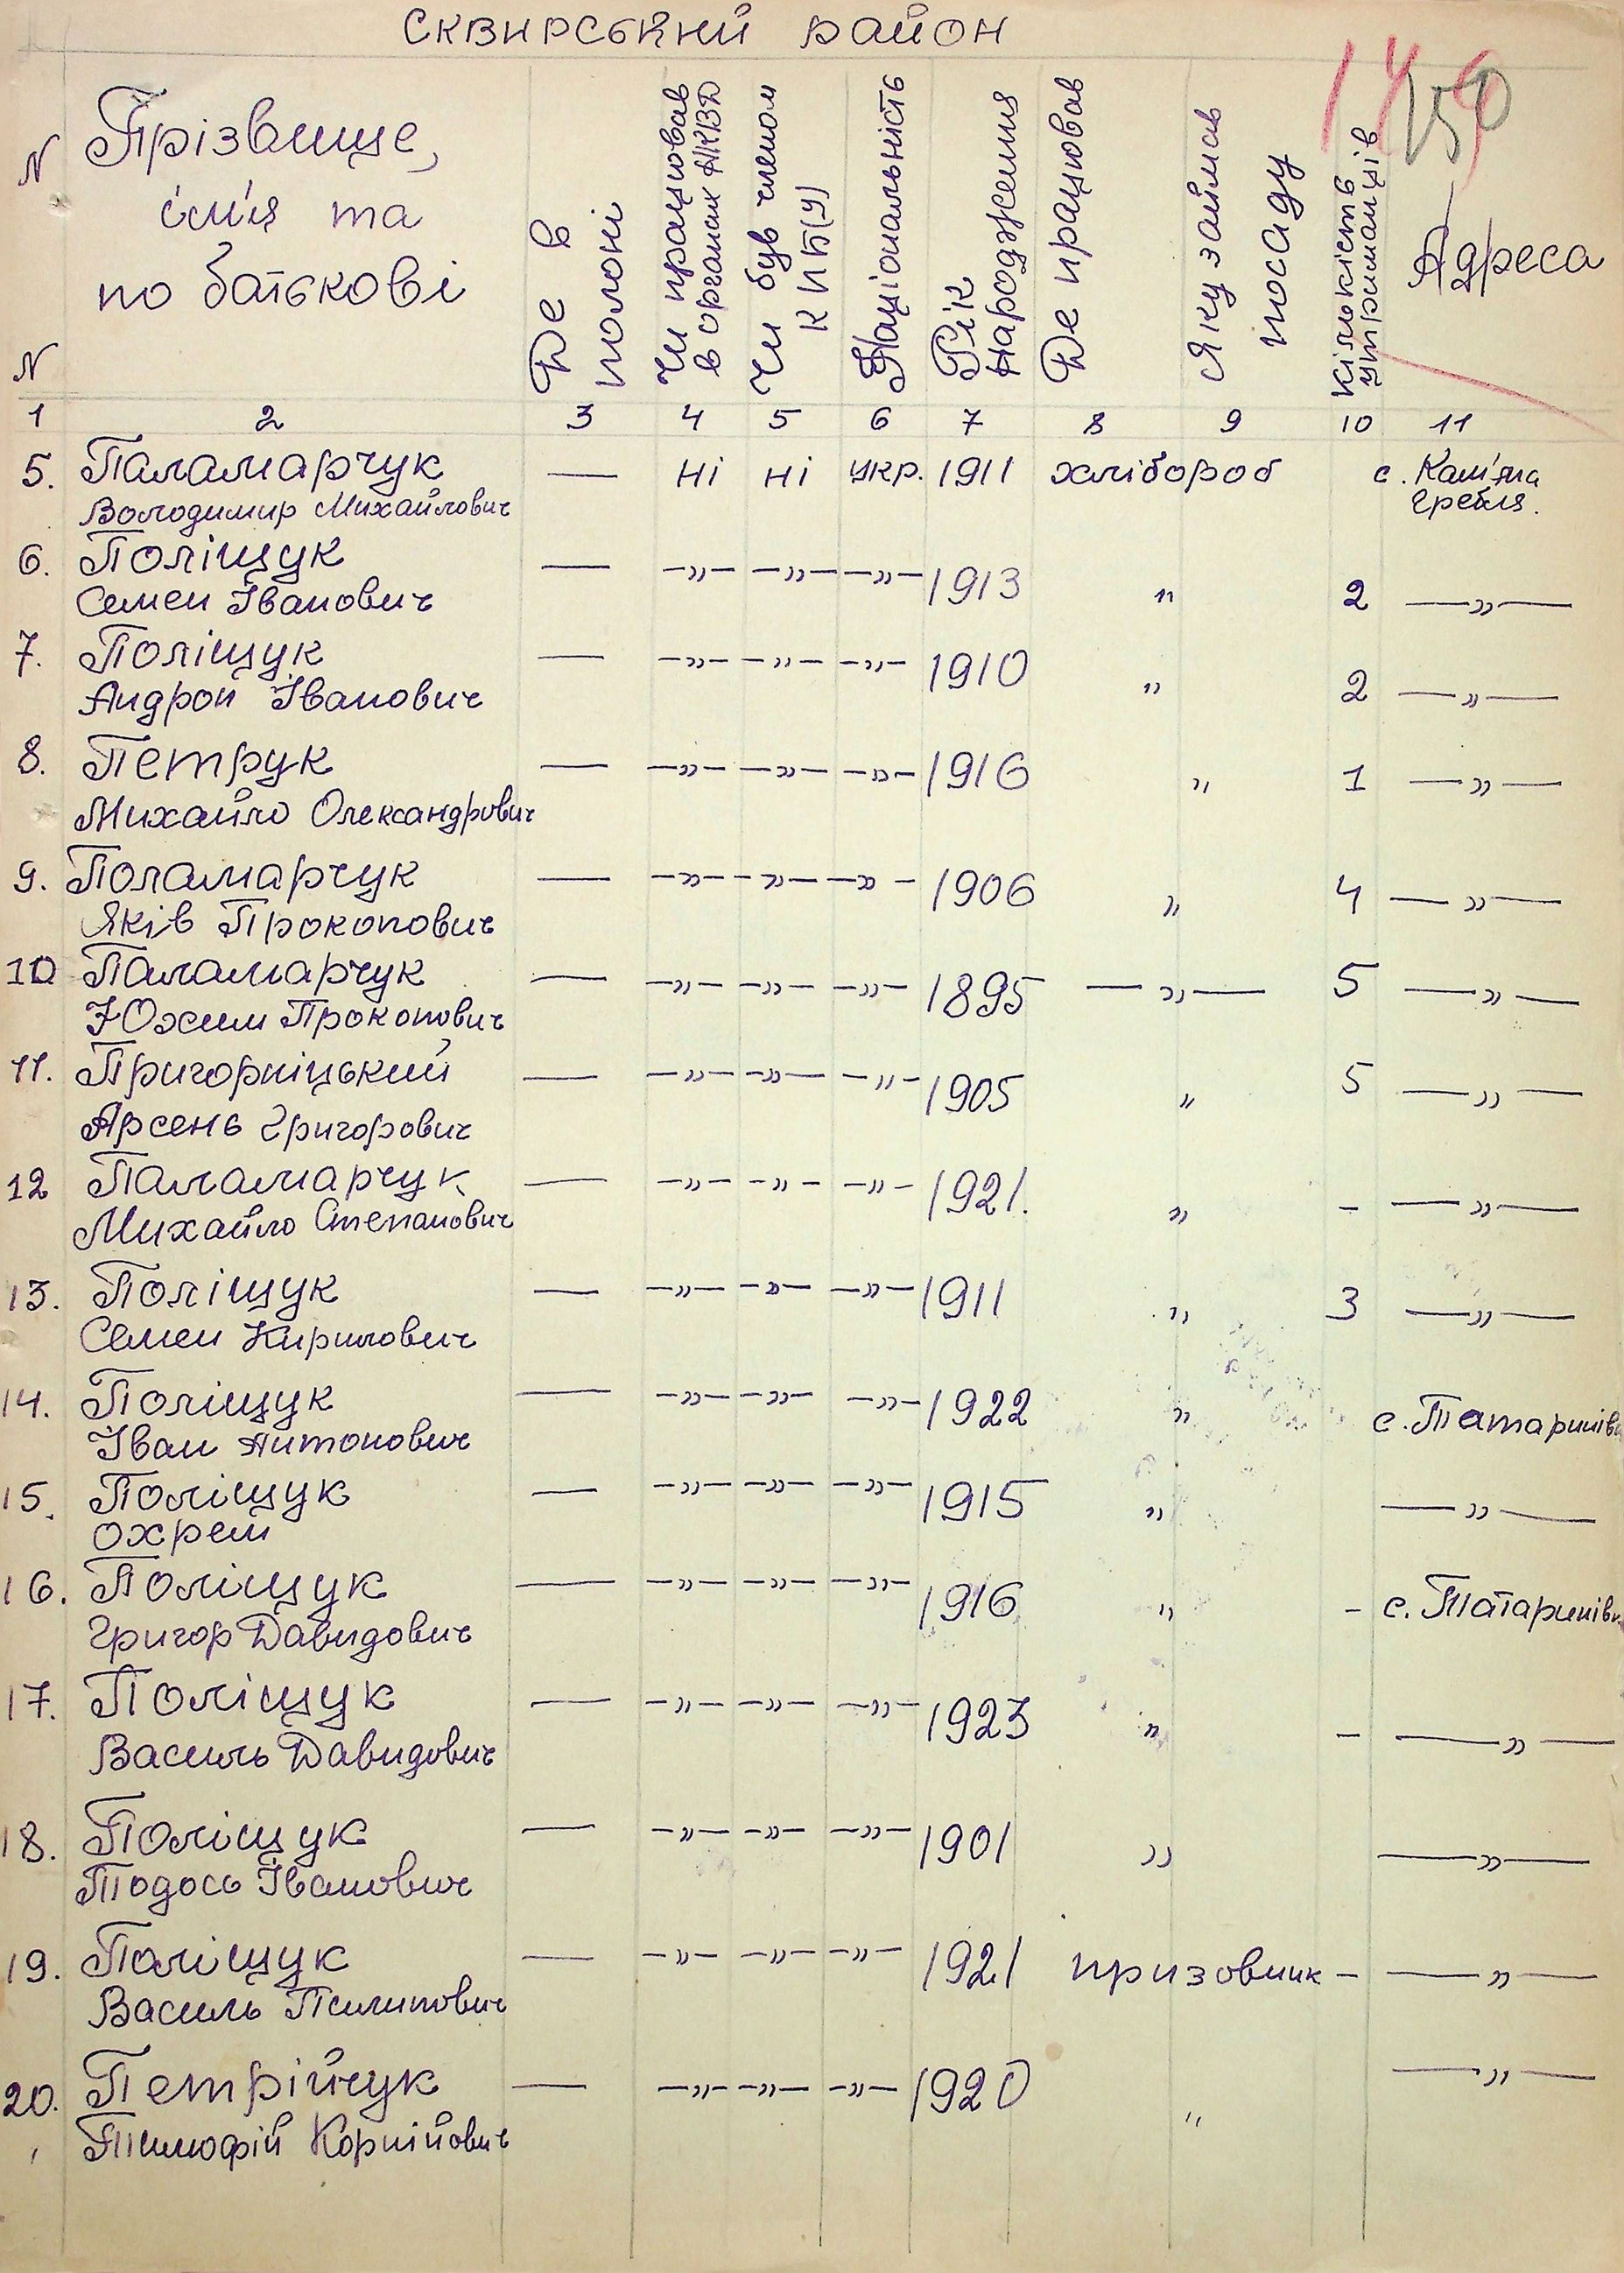 Сквирський район
149
150
N
N
Прізвище,
ім'я та
по батькові
Де в
полоні
Чи працював
в органах НКВД
Чи був членом
КПб(У)
Національність
Рік
народження
Де працював
Яку займав
посаду
Кількість
утриманців
Адреса
1 2 3 4 5 6 7 8 9 10 11
5. Паламарчук — ні ні укр. 1911 хлібороб с. Кам'яна
Володимир Михайлович Гребля.
6. Поліщук — —"— —"— —"— 1913 " 2 —"—
Семен Іванович
7. Поліщук — —"— —"— —"— 1910 " 2 —"—
Андрон Іванович
8. Петрук — —"— —"— —"— 1916 " 1 —"—
Михайло Олександрович
9. Поламарчук — —"— —"— —"— 1906 " 4 —"—
Яків Прокопович
10 Паламарчук — —"— —"— —"— 1895 —"— 5 —"—
Юхим Прокопович
11. Пригорніцький — —"— —"— —"— 1905 " 5 —"—
Арсень Григорович
12 Паламарчук — —"— —"— —"— 1921. " - —"—
Михайло Степанович
13. Поліщук — —"— —"— —"— 1911 " 3 —"—
Семен Кирилович
14. Поліщук — —"— —"— —"— 1922 " с. Татаринівк
Іван Антонович
15. Поліщук — —"— —"— —"— 1915 " —"—
Охрем
16. Поліщук — —"— —"— —"— 1916 " - с. Татаринівк
Григор Давидович
17. Поліщук — —"— —"— —"— 1923 " - —"—
Василь Давидович
18. Поліщук — —"— —"— —"— 1901 " —"—
Тодось Іванович
19. Поліщук — —"— —"— —"— 1921 призовник - —"—
Василь Пилипович
20. Петрійчук — —"— —"— —"— 1920 " —"—
Тимофій Корнійович